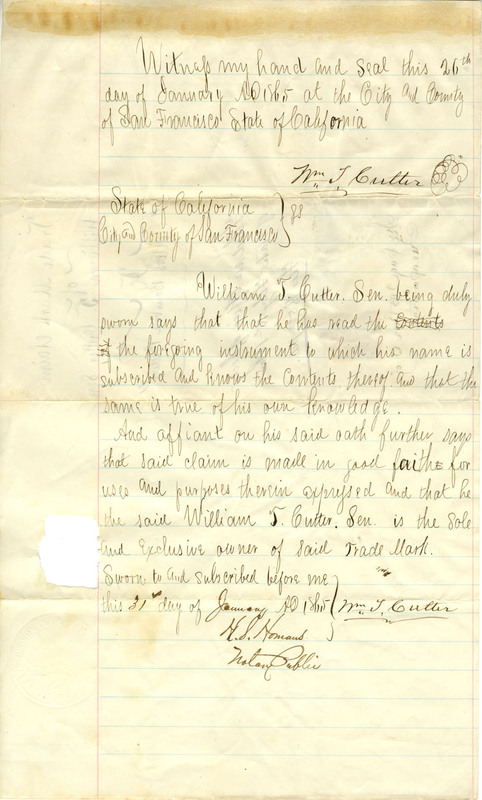 Witness my hand and Seal this 26th
day of January AD 1865 at the City and County
of San Francisco State of California
Wm T. Cutter
State of California
City and County of San Francisco } SS
William T. Cutter. Sen. being duly
sworn says that that he has read the contents
of the foregoing instrument to which his name is
subscribed and knows the contents thereof and that the
same is true of his own knowledge.
And affiant on his said oath further says
that said claim is made in good faith for
uses and purposes therein expressed and that he
the said William T. Cutter. Sen. is the Sole
and Exclusive owner of said Trade Mark.
Sworn to and subscribed before me
this 31st day of January AD 1865 } Wm T. Cutter
H. S. Homans
Notary Public